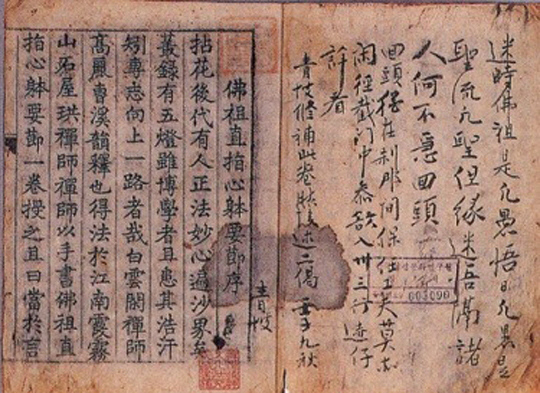 迷時佛祖是凡愚悟時凡愚是
聖流凡聖但緣迷悟隔諸
人何不急回頭
回頭仔在刹那間保任工夫莫
閑徑截门中欲入卅三遼仔
許看
青坡修補此卷述二偈 壬子九秋
003090
青坡
佛祖直指心躰要節序
拈花後代有人正法妙心遍沙界矣
叢錄有五燈雖博學者且患其浩汗
矧專志向上一路者哉白雲閒禪師
高麗曹溪韻釋也得法於江南霞霧
山石屋珙禪師禪師以手書佛祖直
指心躰要節一卷授之且曰當於言